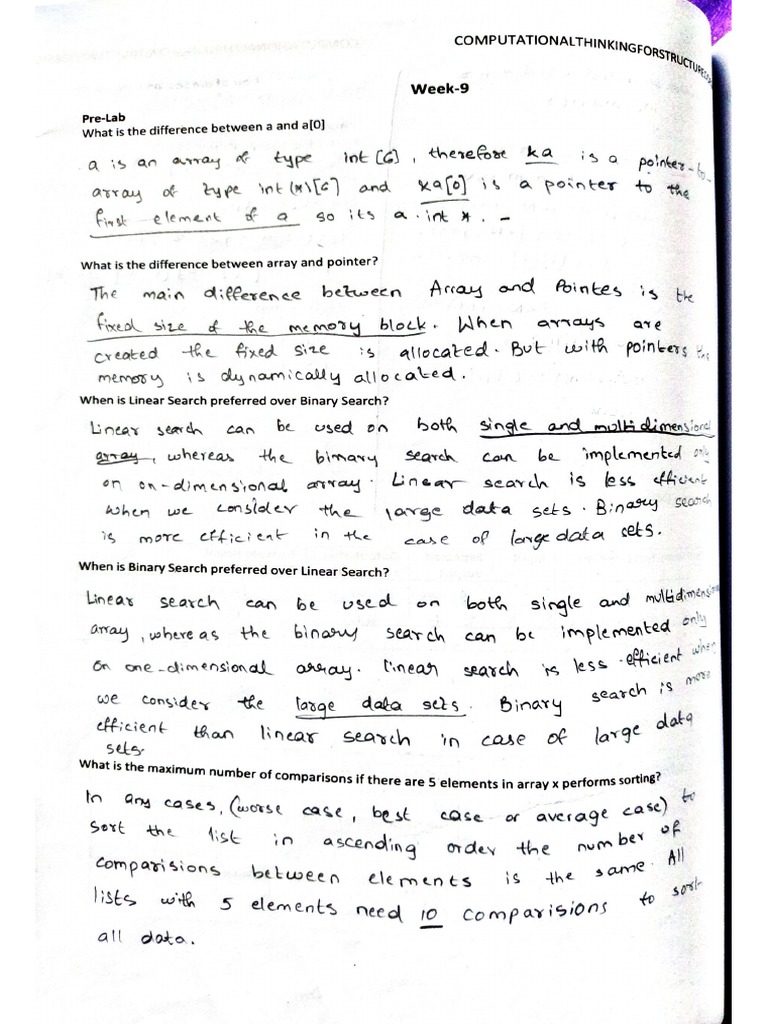 COMPUTATIONALTHINKINGFORSTRUCTURED
Week-9
Pre-Lab
What is the difference between a and a[0]
a is an array of type int [6], therefore &a is a pointer-to-
array of type int (*)[6] and &a[0] is a pointer to the
first element of a so its a int *. -
What is the difference between array and pointer?
The main difference between Array and Pointes is the
fixed size of the memory block. When arrays are
created the fixed size is allocated. But with pointers the
memory is dynamically allocated.
When is Linear Search preferred over Binary Search?
Linear search can be used on both single and multidimensional
array, whereas the binary search can be implemented only
on on-dimensional array. Linear search is less efficient
when we consider the large data sets. Binary search
is more efficient in the case of large data sets.
When is Binary Search preferred over Linear Search?
Linear search can be used on both single and multidimensional
array, where as the binary search can be implemented only
on one-dimensional array. Linear search is less efficient when
we consider the large data sets. Binary search is more
efficient than linear search in case of large data
sets.
What is the maximum number of comparisons if there are 5 elements in array x performs sorting?
In any cases, (worse case, best case or average case) to
sort the list in ascending order the number of
comparisions between elements is the same. All
lists with 5 elements need 10 comparisions to sort
all data.